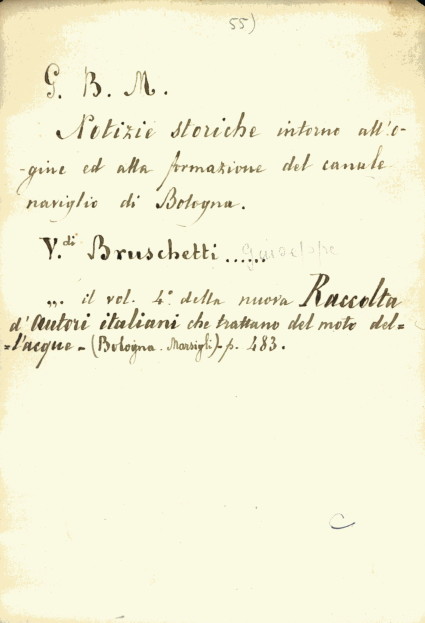 55)
G. B. M.
Notizie storiche intorno all'o-
-gine ed alla formazione del canale
naviglio di Bologna.
V.di Bruschetti ...... Giuseppe
„. il vol. 4.° della nuova Raccolta
d'autori italiani che trattano del moto del=
=l'acque - (Bologna. Marsigli) - p. 483.
C